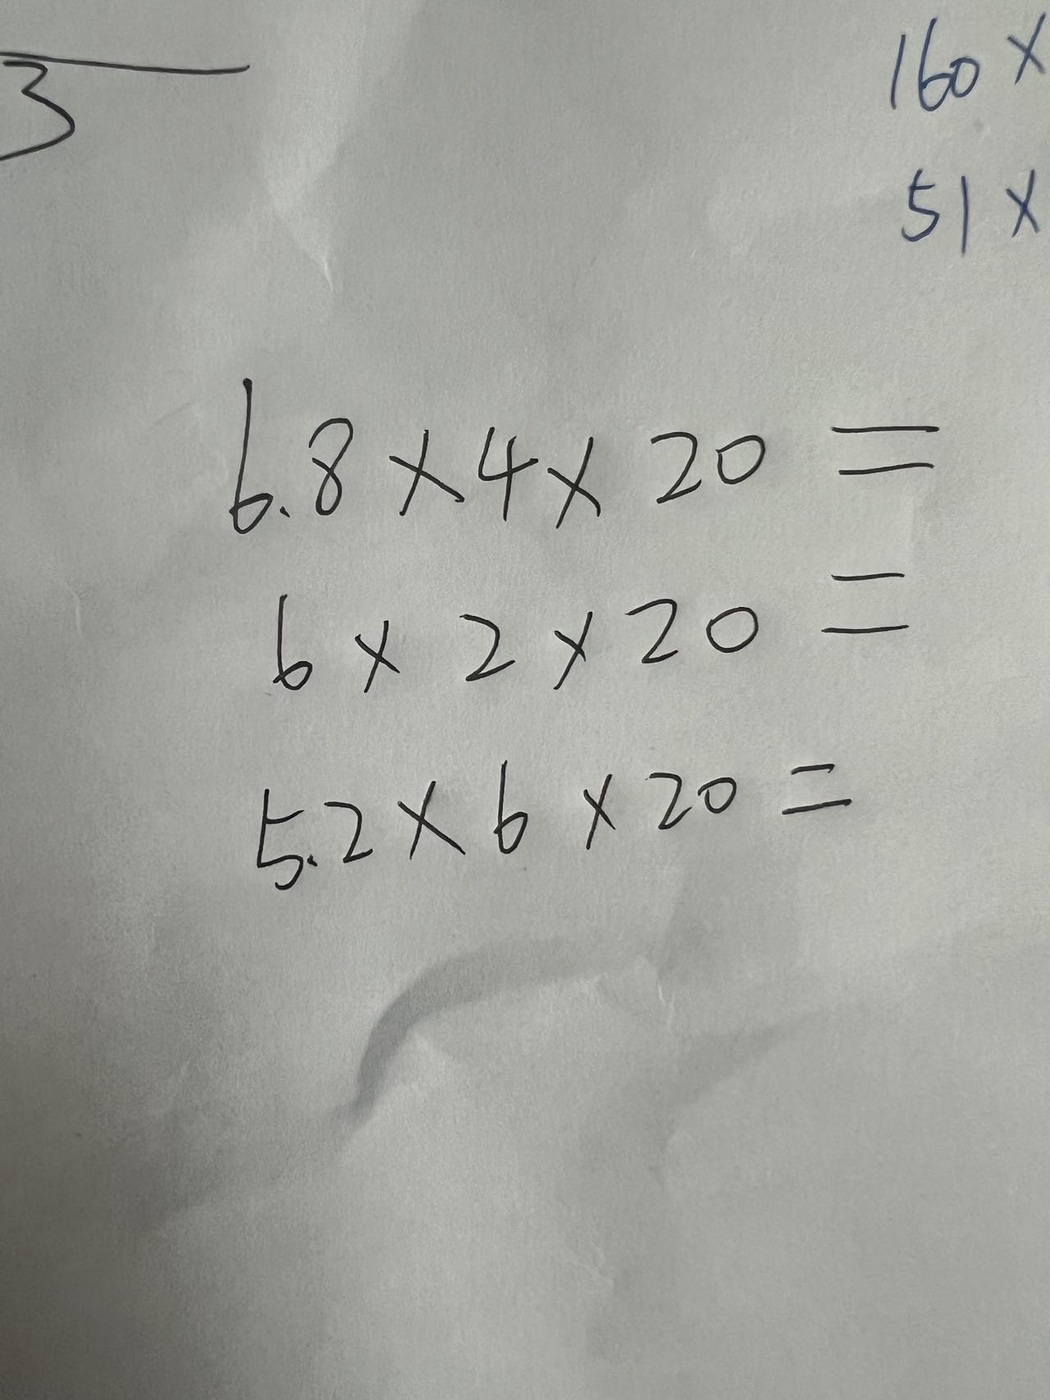 3
160 ×
51 ×
6.8 × 4 × 20 =
6 × 2 × 20 =
5.2 × 6 × 20 =